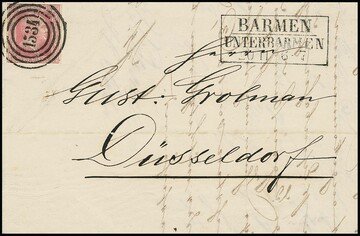 1534
BARMEN
UNTERBARMEN
Herrn
Gust: Grolman
Düsseldorf